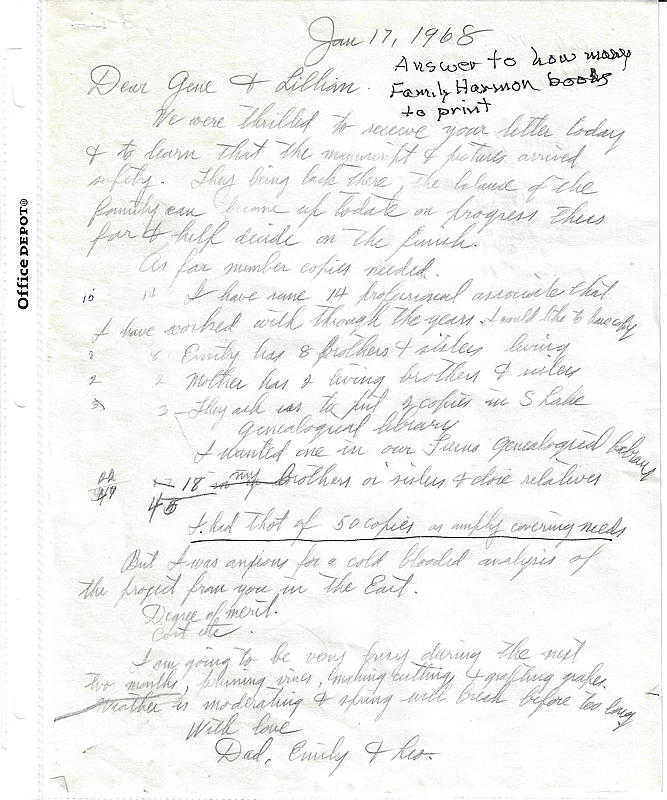 Jan 17, 1968
Answer to how many
Family Harmon books
to print
Dear Gene & Lillian.
We were thrilled to receive your letter today
& to learn that the manuscript & pictures arrived
safely. They being back there, the balance of the
family can become up todate on progress thus
far & help decide on the finish.
As for number copies needed.
10 14 I have some 14 professional associate that
I have worked with through the years. I would like to have copy
8 8 Emily has 8 brothers & sisters living
2 2 Mother has 2 living brothers & sisters
3 3 - They ask us to put 2 copies in S Lake
genealogical library
I wanted one in our genealogical library
22 18 my brothers or sisters & close relatives
45
I had thot of 50 copies as amply covering needs
But I was anxious for a cold blooded analysis of
the project from you in the East.
Degree of merit.
Cost etc
I am going to be very busy during the next
two months, pruning vines, making cuttings & grafting grapes.
Weather is moderating & spring will break before too long
With love
Dad, Emily &
Office DEPOT®